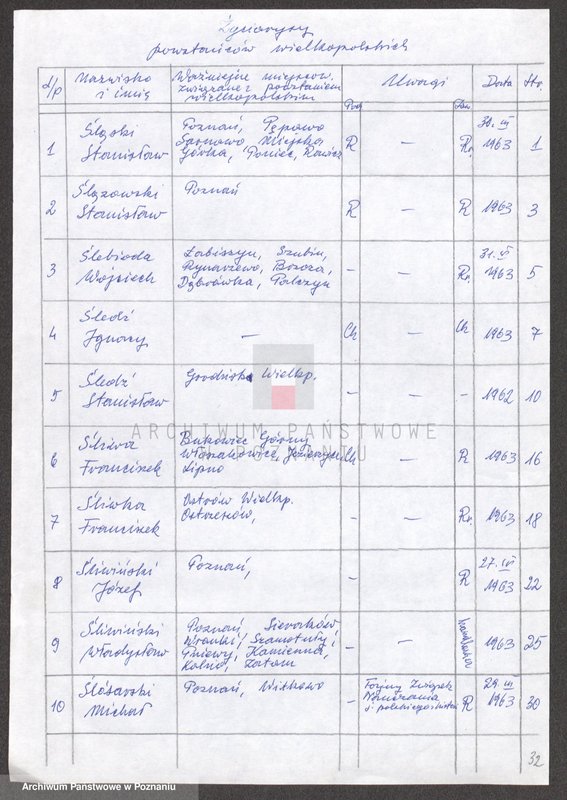 Życiorysy
powstańców wielkopolskich
l/p Nazwisko i imię Ważniejsze miejscow. związane z powstaniem wielkopolskim Uwagi Data Str.
1 Śląski Stanisław Poznań, Pępowo Sarnowa Miejska Górka, Poniec, Rawicz R — R. 30. III 1963 1
2 Ślązowski Stanisław Poznań R — R 1963 3
3 Ślebioda Wojciech Łabiszyn, Szubin, Rynarzewo, Brzoza, Dąbrówka, Palczyn - — R. 31. VI 1963 5
4 Śledź Ignacy — Ch — Ch 1963 7
5 Śledź Stanisław Grodzisk Wielkp. - — - 1962 10
6 Śliwa Franciszek Bukowiec Górny Włoszakowice, Jezierzyce Lipno Ch — R 1963 16
7 Śliwka Franciszek Ostrów Wielkp. Ostrzeszów, - — R. 1963 18
8 Śliwiński Józef Poznań, - R 27. VI 1963 22
9 Śliwiński Władysław Poznań, Sieraków Wronki, Szamotuły, Pniewy, Kamienna, Kolno, Zatom - — 1963 25
10 Ślósarski Michał Poznań, Witkowo - Tajny Związek R 29. III 1963 30
32
ARCHIWUM PAŃSTWOWE
W POZNANIU
Archiwum Państwowe w Poznaniu